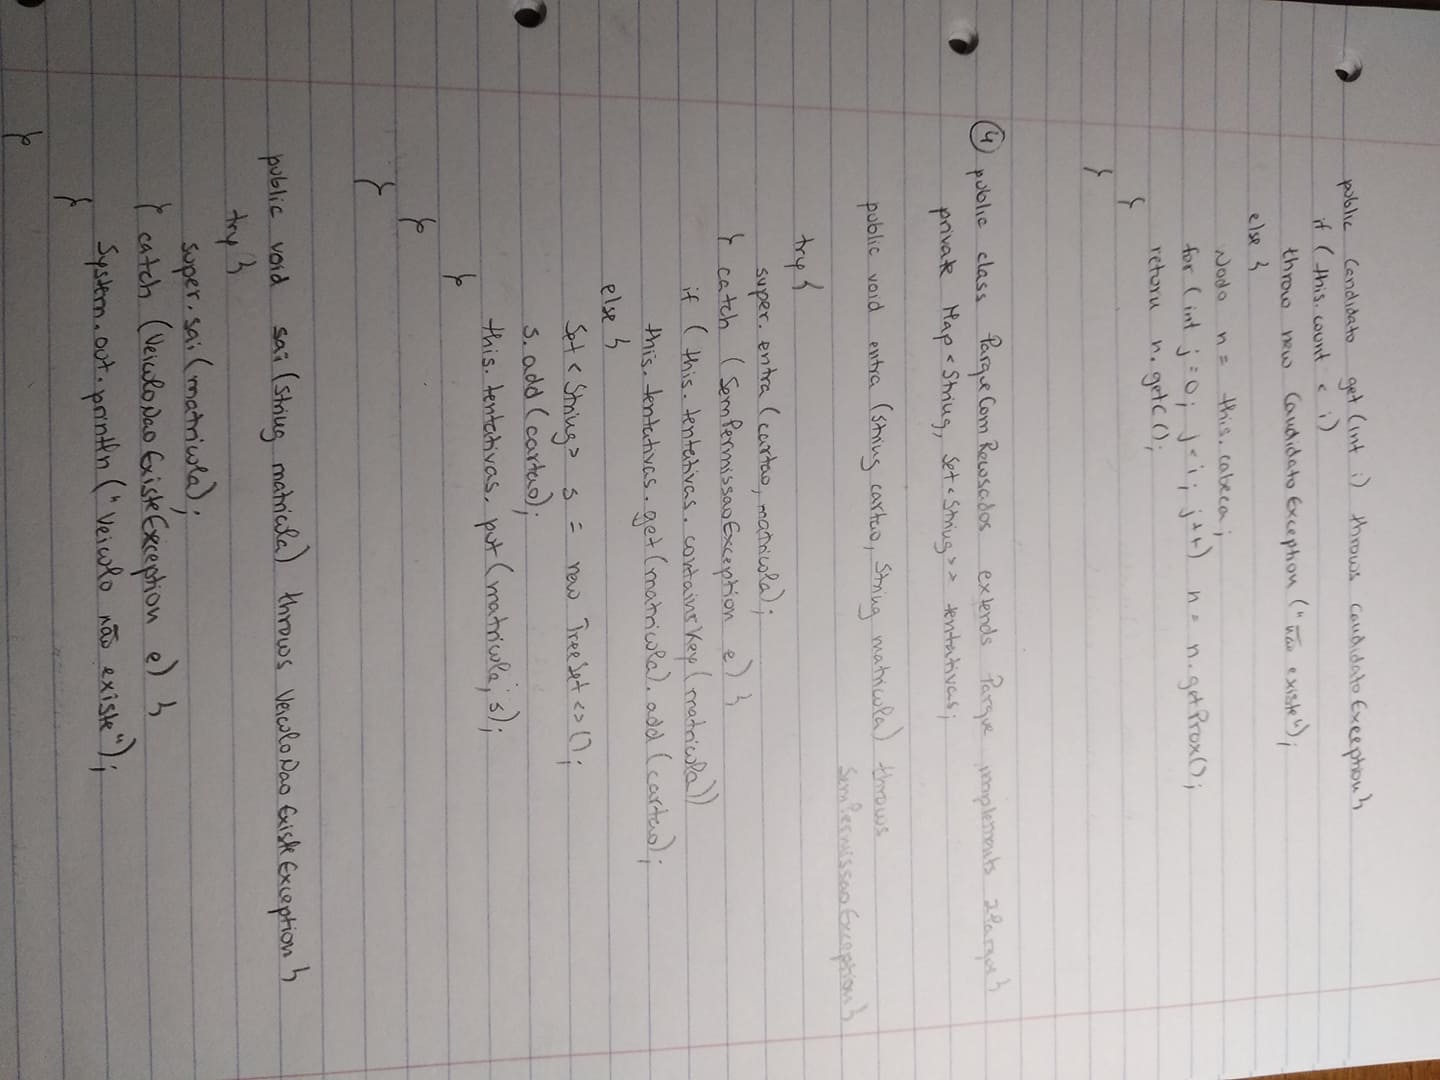 public Candidato get (int i) throws CandidatoException{
if (this.count < i)
throw new CandidatoException ("não existe");
else {
Nodo n = this.cabeca;
for (int j=0; j<i; j++) n = n.getProx();
return n.getC();
}
}
④ public class ParqueComRecusados extends Parque implements IParque{
private Map<String, Set<String>> tentativas;
public void entra (String cartao, String matricula) throws
SemPermissaoException{
try {
super.entra (cartao, matricula);
} catch (SemPermissaoException e) {
if (this.tentativas.containsKey(matricula))
this.tentativas.get(matricula).add(cartao);
else {
Set<String> s = new TreeSet<>();
s.add(cartao);
this.tentativas.put(matricula, s);
}
}
}
public void sai (String matricula) throws VeiculoNaoExisteException {
try {
super.sai(matricula);
} catch (VeiculoNaoExisteException e) {
System.out.println("Veiculo não existe");
}
}